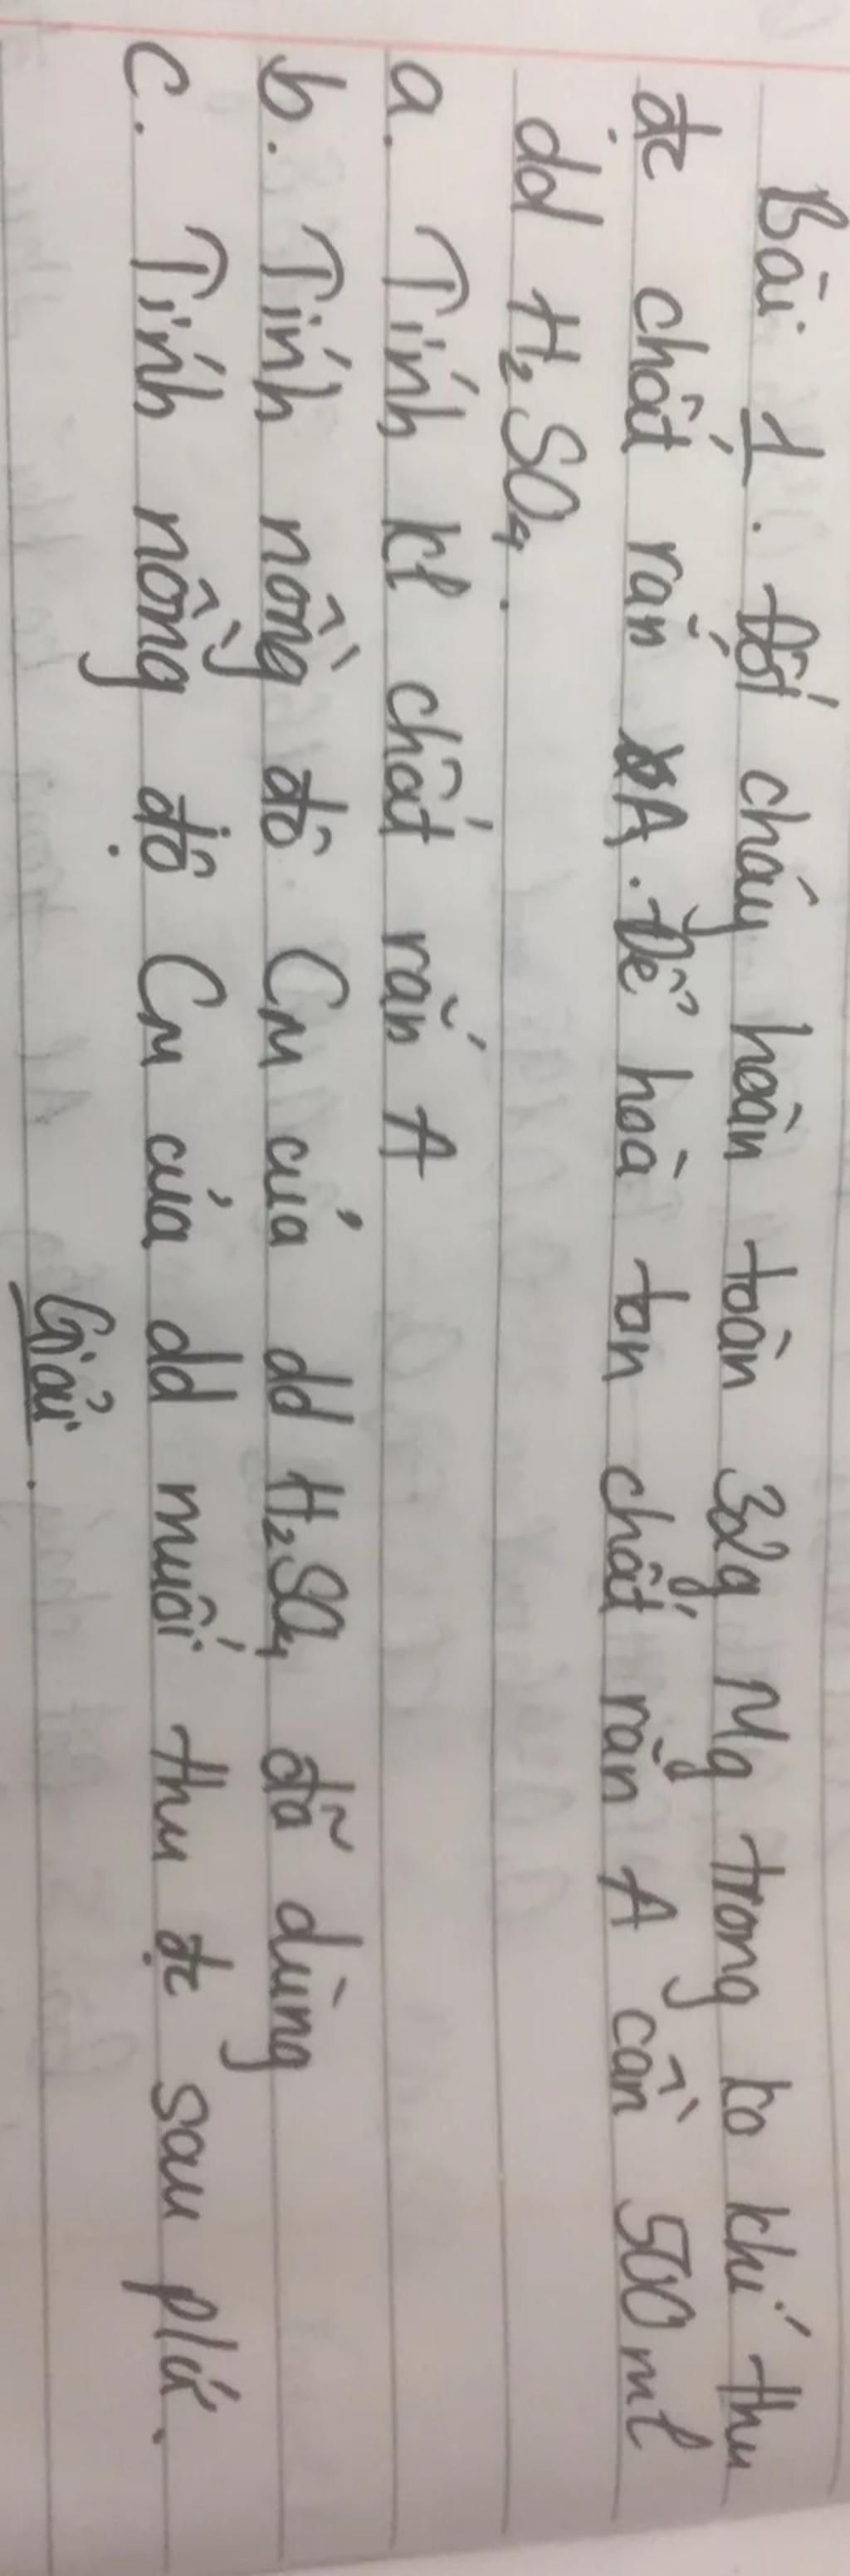 Bài 1. Đốt cháy hoàn toàn 32g Mg trong ko khí thu
đc chất rắn A. Để hoà tan chất rắn A cần 500ml
dd H₂SO₄.
a. Tính kl chất rắn A
b. Tính nồng độ CM của dd H₂SO₄ đã dùng
c. Tính nồng độ CM của dd muối thu đc sau p/ứ.
Giải.